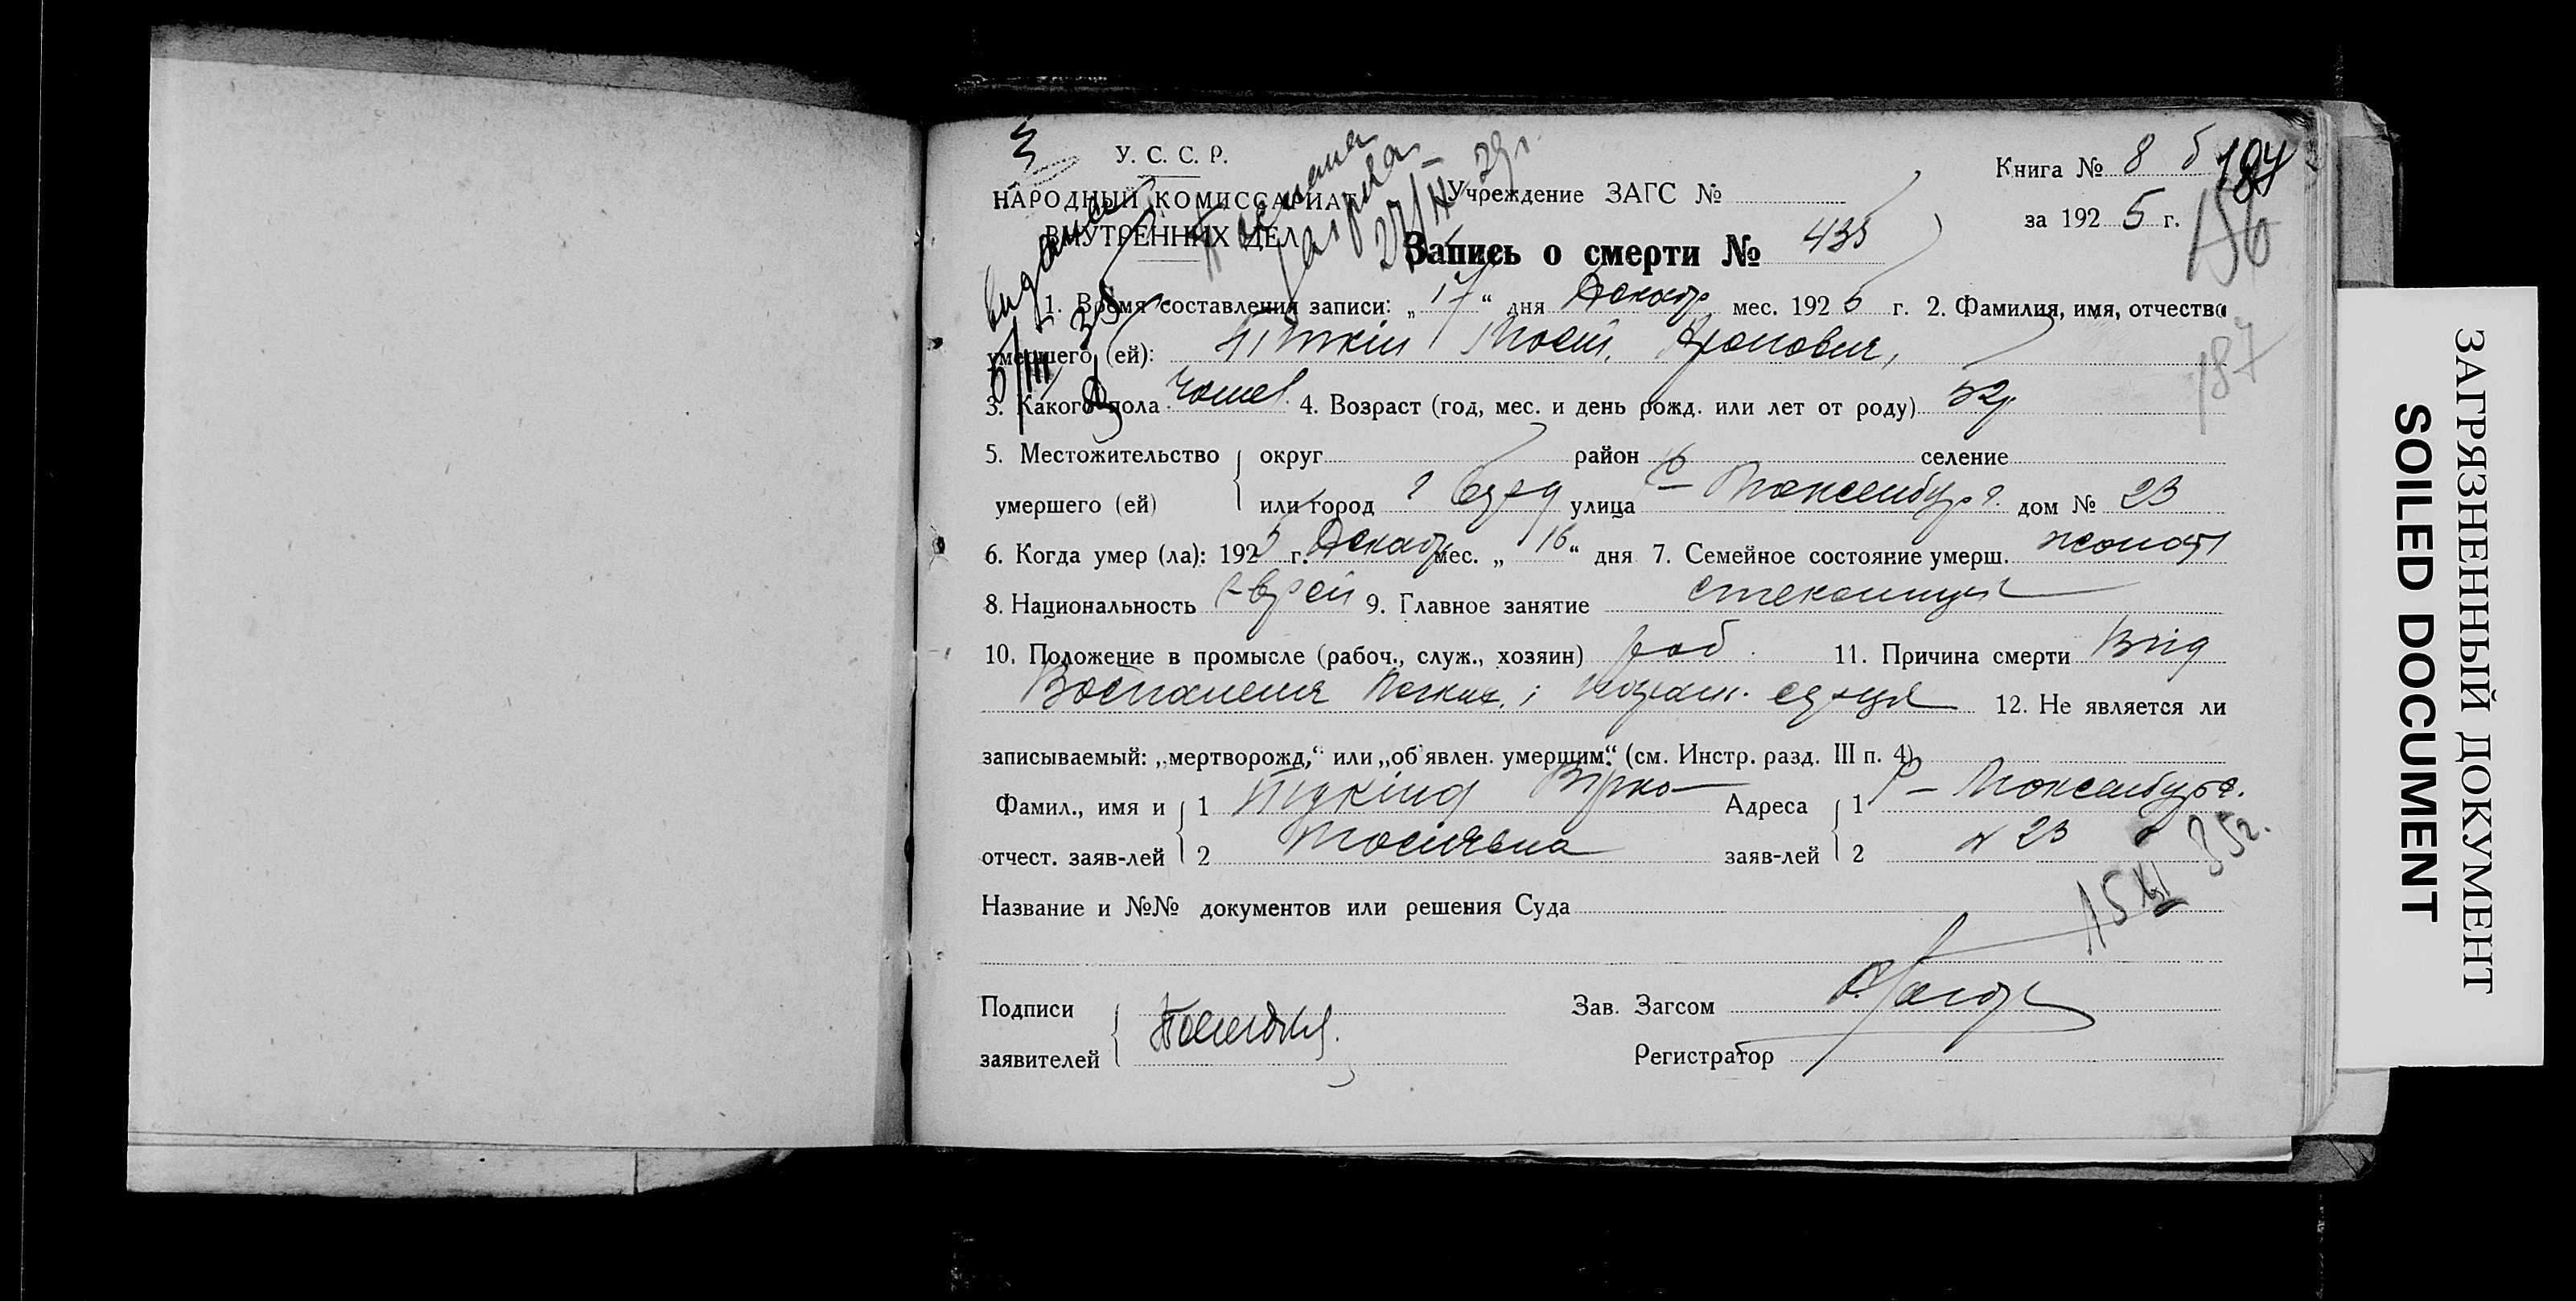 У. С. С. Р.
НАРОДНЫЙ КОМИССАРИАТ
ВНУТРЕННИХ ДЕЛ
Учреждение ЗАГС №
Книга № 8 б 184
за 1925 г.
156
187
Запись о смерти № 435
27/II — 29 г.
1. Время составления записи: „17“ дня Декабр мес. 1925 г. 2. Фамилия, имя, отчество
умершего (ей): Мосей, Аронович,
3. Какого пола 4. Возраст (год, мес. и день рожд. или лет от роду) 52
5. Местожительство округ район селение
умершего (ей) или город улица Р— Люксембург. дом № 23
6. Когда умер (ла): 1925 г. Декабр мес. „16“ дня 7. Семейное состояние умерш. женат
8. Национальность Еврей 9. Главное занятие стекольщик
10. Положение в промысле (рабоч., служ., хозяин) роб. 11. Причина смерти Від
Воспаления Легких, і серця 12. Не является ли
записываемый: „мертворожд,“ или „об'явлен. умершим.“ (см. Инстр. разд. III п. 4)
Фамил., имя и 1 Адреса 1 Р— Люксембург.
отчест. заяв-лей 2 Мосіевна заяв-лей 2 № 23
35 г.
Название и №№ документов или решения Суда
Подписи
заявителей
Зав. Загсом
Регистратор
ЗАГРЯЗНЕННЫЙ ДОКУМЕНТ
SOILED DOCUMENT